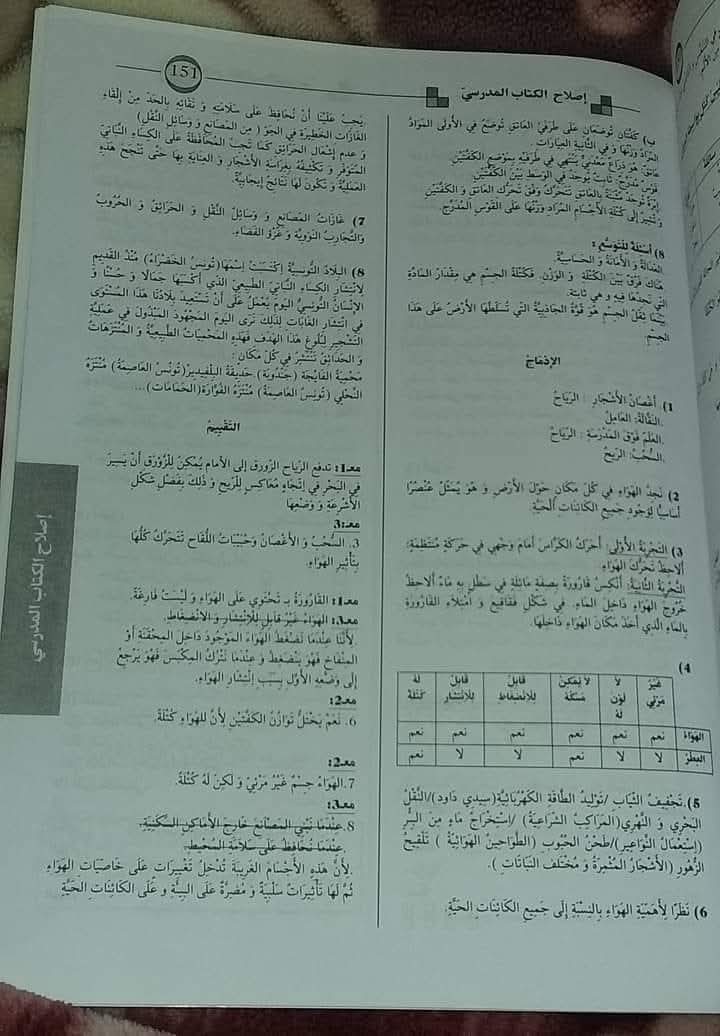 151
إصلاح الكتاب المدرسي
ب) كفتان توضعان على طرفي العاتق توضع في الأولى المواد
المراد وزنها و في الثانية العيارات.
عاتق: هو ذراع معدني ينتهي في طرفيه بموضع الكفتين.
قوس مدرج: ثابت يوجد في الوسط بين الكفتين
إبرة توجد مثبتة بالعاتق تتحرك وفق تحرك العاتق و الكفتين
و تشير إلى كتلة الأجسام المراد وزنها على القوس المدرج.
8) أسئلة للتوسع :
العدالة و الأمانة و الحساسية.
هناك فرق بين الكتلة و الوزن. فكتلة الجسم هي مقدار المادة
التي نجدها فيه و هي ثابتة.
بينما ثقل الجسم هو قوة الجاذبية التي تسلطها الأرض على هذا
الجسم.
الإدماج
1) أغصان الأشجار : الرياح
النقالة: العامل.
العلم فوق المدرسة : الرياح
السحب: الريح
2) نجد الهواء في كل مكان حول الأرض و هو يمثل عنصرا
أساسيا لوجود جميع الكائنات الحية
3) التجربة الأولى: أحرك الكراس أمام وجهي في حركة منتظمة:
ألاحظ تحرك الهواء.
التجربة الثانية: أنكس قارورة بصفة مائلة في سطل به ماء ألاحظ
خروج الهواء داخل الماء. في شكل فقاقيع و امتلاء القارورة
بالماء الذي أخذ مكان الهواء داخلها.
4)
غير مرئي | لا لون له | لا يمكن مسكه | قابل للانضغاط | قابل للانتشار | له كتلة
الهواء | نعم | نعم | نعم | نعم | نعم | نعم
العطر | لا | لا | نعم | لا | لا | نعم
5) تجفيف الثياب /توليد الطاقة الكهربائية(سيدي داود)/النقل
البحري و النهري(المراكب الشراعية) /استخراج ماء من البئر
(إستعمال النواعير)/طحن الحبوب (الطواحين الهوائية ) تلقيح
الزهور (الأشجار المثمرة و مختلف النباتات ).
6) نظرا لأهمية الهواء بالنسبة إلى جميع الكائنات الحية.
يجب علينا أن نحافظ على سلامته و نقائه بالحد من إلقاء
الغازات الخطيرة في الجو ( من المصانع و وسائل النقل)
و عدم إشعال الحرائق كما تجب المحافظة على الكساء النباتي
المتوفر و تكثيفه بغراسة الأشجار و العناية بها حتى تنجح هذه
العملية و تكون لها نتائج إيجابية.
7) غازات المصانع و وسائل النقل و الحرائق و الحروب
والتجارب النووية و غزو الفضاء.
8) البلاد التونسية إكتسبت إسمها(تونس الخضراء) منذ القديم
لانتشار الكساء النباتي الطبيعي الذي أكسبها جمالا و حسنا و
الإنسان التونسي اليوم يعمل على أن تستعيد بلادنا هذا المستوى
في انتشار الغابات لذلك ترى اليوم المجهود المبذول في عملية
التشجير لبلوغ هذا الهدف فهذه المحميات الطبيعية و المنتزهات
و الحدائق تنتشر في كل مكان :
محمية الفايجة (جندوبة) حديقة البلفيدير(تونس العاصمة) منتزه
النحلي (تونس العاصمة) منتزه الفوارة(الحمامات)...
التقييم
معـ1: تدفع الرياح الزورق إلى الأمام يمكن للزورق أن يسير
في البحر في إتجاه معاكس للريح و ذلك بفضل شكل
الأشرعة و وضعها
معـ3:
3. السحب و الأغصان و حبيبات اللقاح تتحرك كلها
بتأثير الهواء.
معـ1: القارورة بـ تحتوي على الهواء و ليست فارغة.
معـ3: الهواء غير قابل للانتشار و الانضغاط.
لأننا عندما نضغط الهواء الموجود داخل المحقنة أو
المنفاخ فهو ينضغط و عندما نترك المكبس فهو يرجع
إلى وضعه الأول بسبب إنتشار الهواء.
معـ2:
6. نعم يختل توازن الكفتين لأن للهواء كتلة.
معـ2:
7. الهواء جسم غير مرئي و لكن له كتلة.
معـ3:
8. عندما نبني المصانع خارج الأماكن السكنية.
عندما نحافظ على سلامة المحيط.
لأن هذه الأجسام الغريبة تدخل تغييرات على خاصيات الهواء
ثم لها تأثيرات سلبية و مضرة على البيئة و على الكائنات الحية
إصلاح الكتاب المدرسي